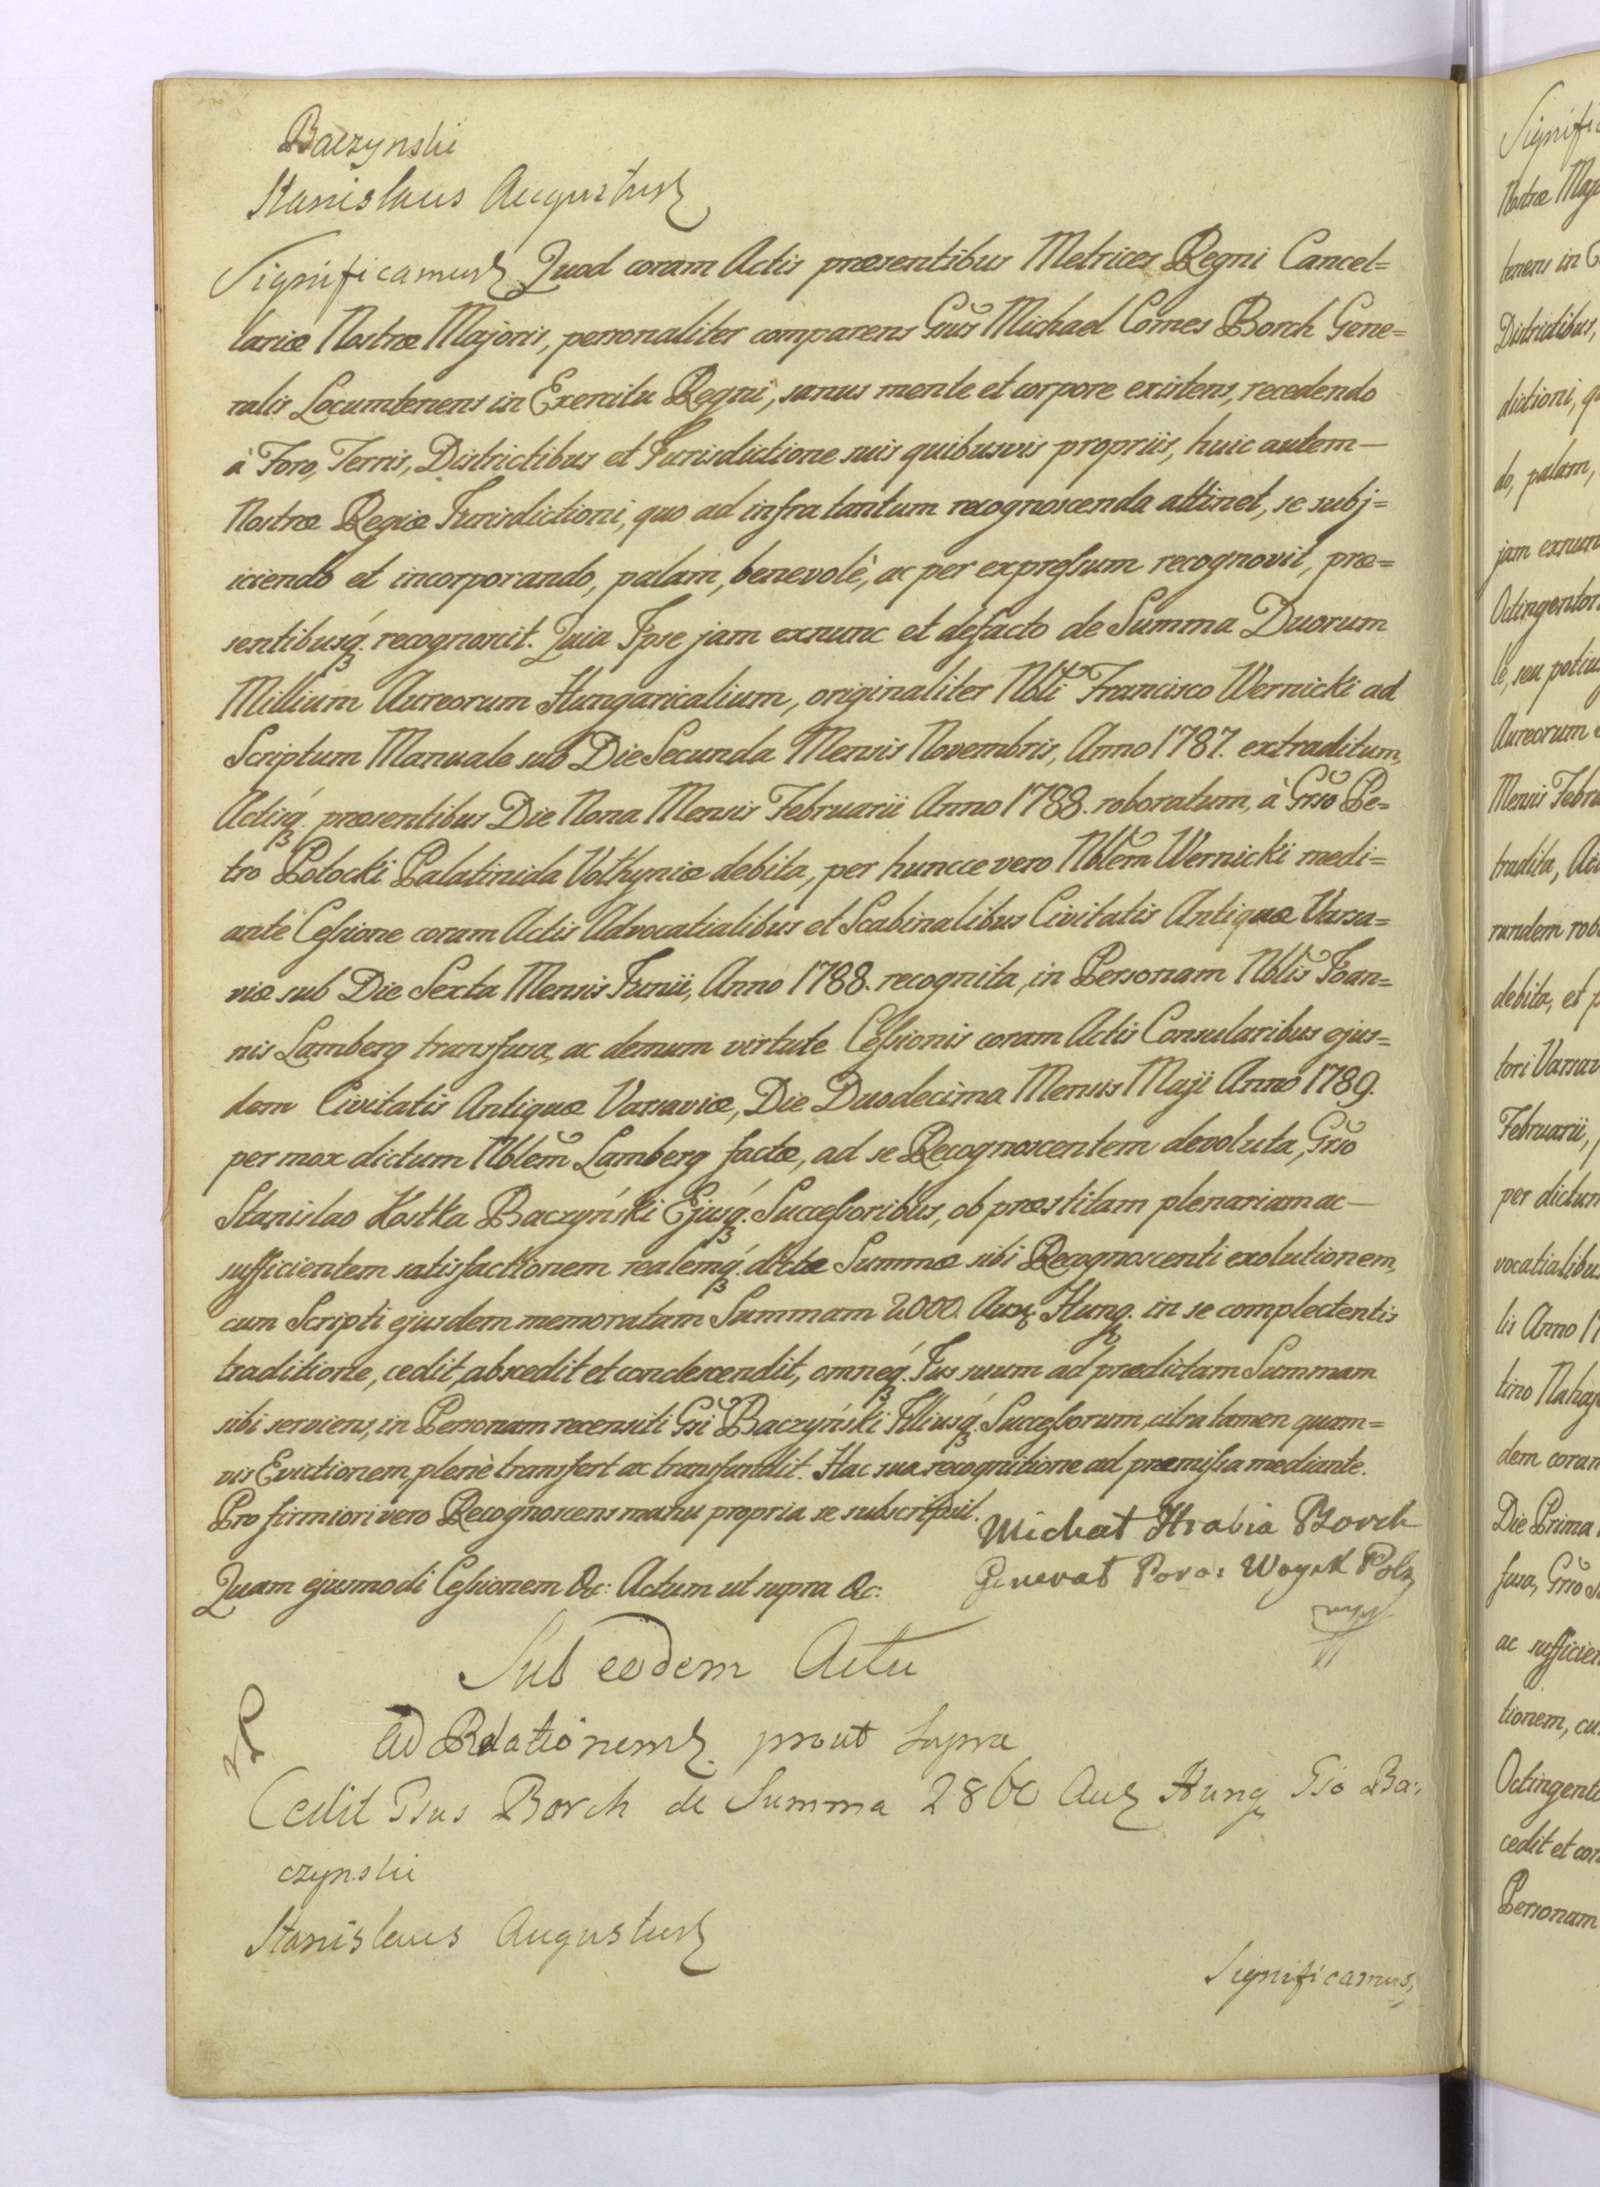 Baczynski
Stanislaus Augustus
Significamus Quod coram Actis præsentibus Metrices Regni Cancel=
lariæ Nostræ Majoris, personaliter comparens Gñus Michael Comes Borch Gene=
ralis Locumtenens in Exercitu Regni, sanus mente et corpore existens, recedendo
à Foro, Terris, Districtibus et Jurisdictione suis quibusvis propriis, huic autem—
Nostræ Regiæ Jurisdictioni, quo ad infra tantum recognoscenda attinet, se subj=
iciendo et incorporando, palam, benevolè, ac per expressum recognovit, præ=
sentibusq́. recognoscit. Quia Ipse jam exnunc et defacto de Summa Duorum
Millium Aureorum Hungaricalium, originaliter Nbli Francisco Wernicki ad
Scriptum Manuale sub Die Secunda Mensis Novembris, Anno 1787. extraditum,
Actisq́. præsentibus Die Nona Mensis Februarii Anno 1788. roboratum, à Grso Pe=
tro Potocki Palatinida Volhyniæ debita, per huncce vero Nblem Wernicki medi=
ante Cessione coram Actis Advocatialibus et Scabinalibus Civitatis Antiquæ Varsa=
viæ sub Die Sexta Mensis Junii, Anno 1788. recognita, in Personam Nblis Joan=
nis Lamberg transfusa, ac demum virtute Cessionis coram Actis Consularibus ejus=
dem Civitatis Antiquæ Varsaviæ, Die Duodecima Mensis Maji Anno 1789.
per mox dictum Nblem Lamberg factæ, ad se Recognoscentem devoluta, Grso
Stanislao Kostka Baczyński Ejusq́. Successoribus, ob præstitam plenariam ac—
sufficientem satisfactionem realemq́. dictæ Summæ sibi Recognoscenti exolutionem,
cum Scripti ejusdem memoratam Summam 2000. Aur. Hung. in se complectentis
traditione, cedit, abscedit et condescendit, omneq́. Jus suum ad prædictam Summam
sibi serviens, in Personam recensiti Gsi Baczyński Illiusq́. Successorum, citra tamen quam=
vis Evictionem, plenè transfert ac transfundit. Hac sua recognitione ad præmissa mediante.
Pro firmiori vero Recognoscens manu propria se subscripsit.
Michał Hrabia Borch
Generał Poro: Woysk Pols
mpp
Quam ejusmodi Cessionem &c: Actum ut supra &c:
Sub eodem Actu
Ad Relationem prout supra
Cedit Gsus Borch de Summa 2800 Aur Hung Gso Ba:
czynski
Stanislaus Augustus
Significamus,
Signific
Nostræ Maj
tenens in E
Districtibus,
dictioni, qu
do, palam,
jam exnun
Octingentor
le, seu potius
Aureorum
Mensis Febru
tradita, Ac
debita, et p
tori Varsav
Februarii,
per dictum
vocatialibus
lis Anno 17
dem coram
Die Prima
fusa, Grso S
ac sufficien
tionem, cu
Octingento
cedit et con
Personam